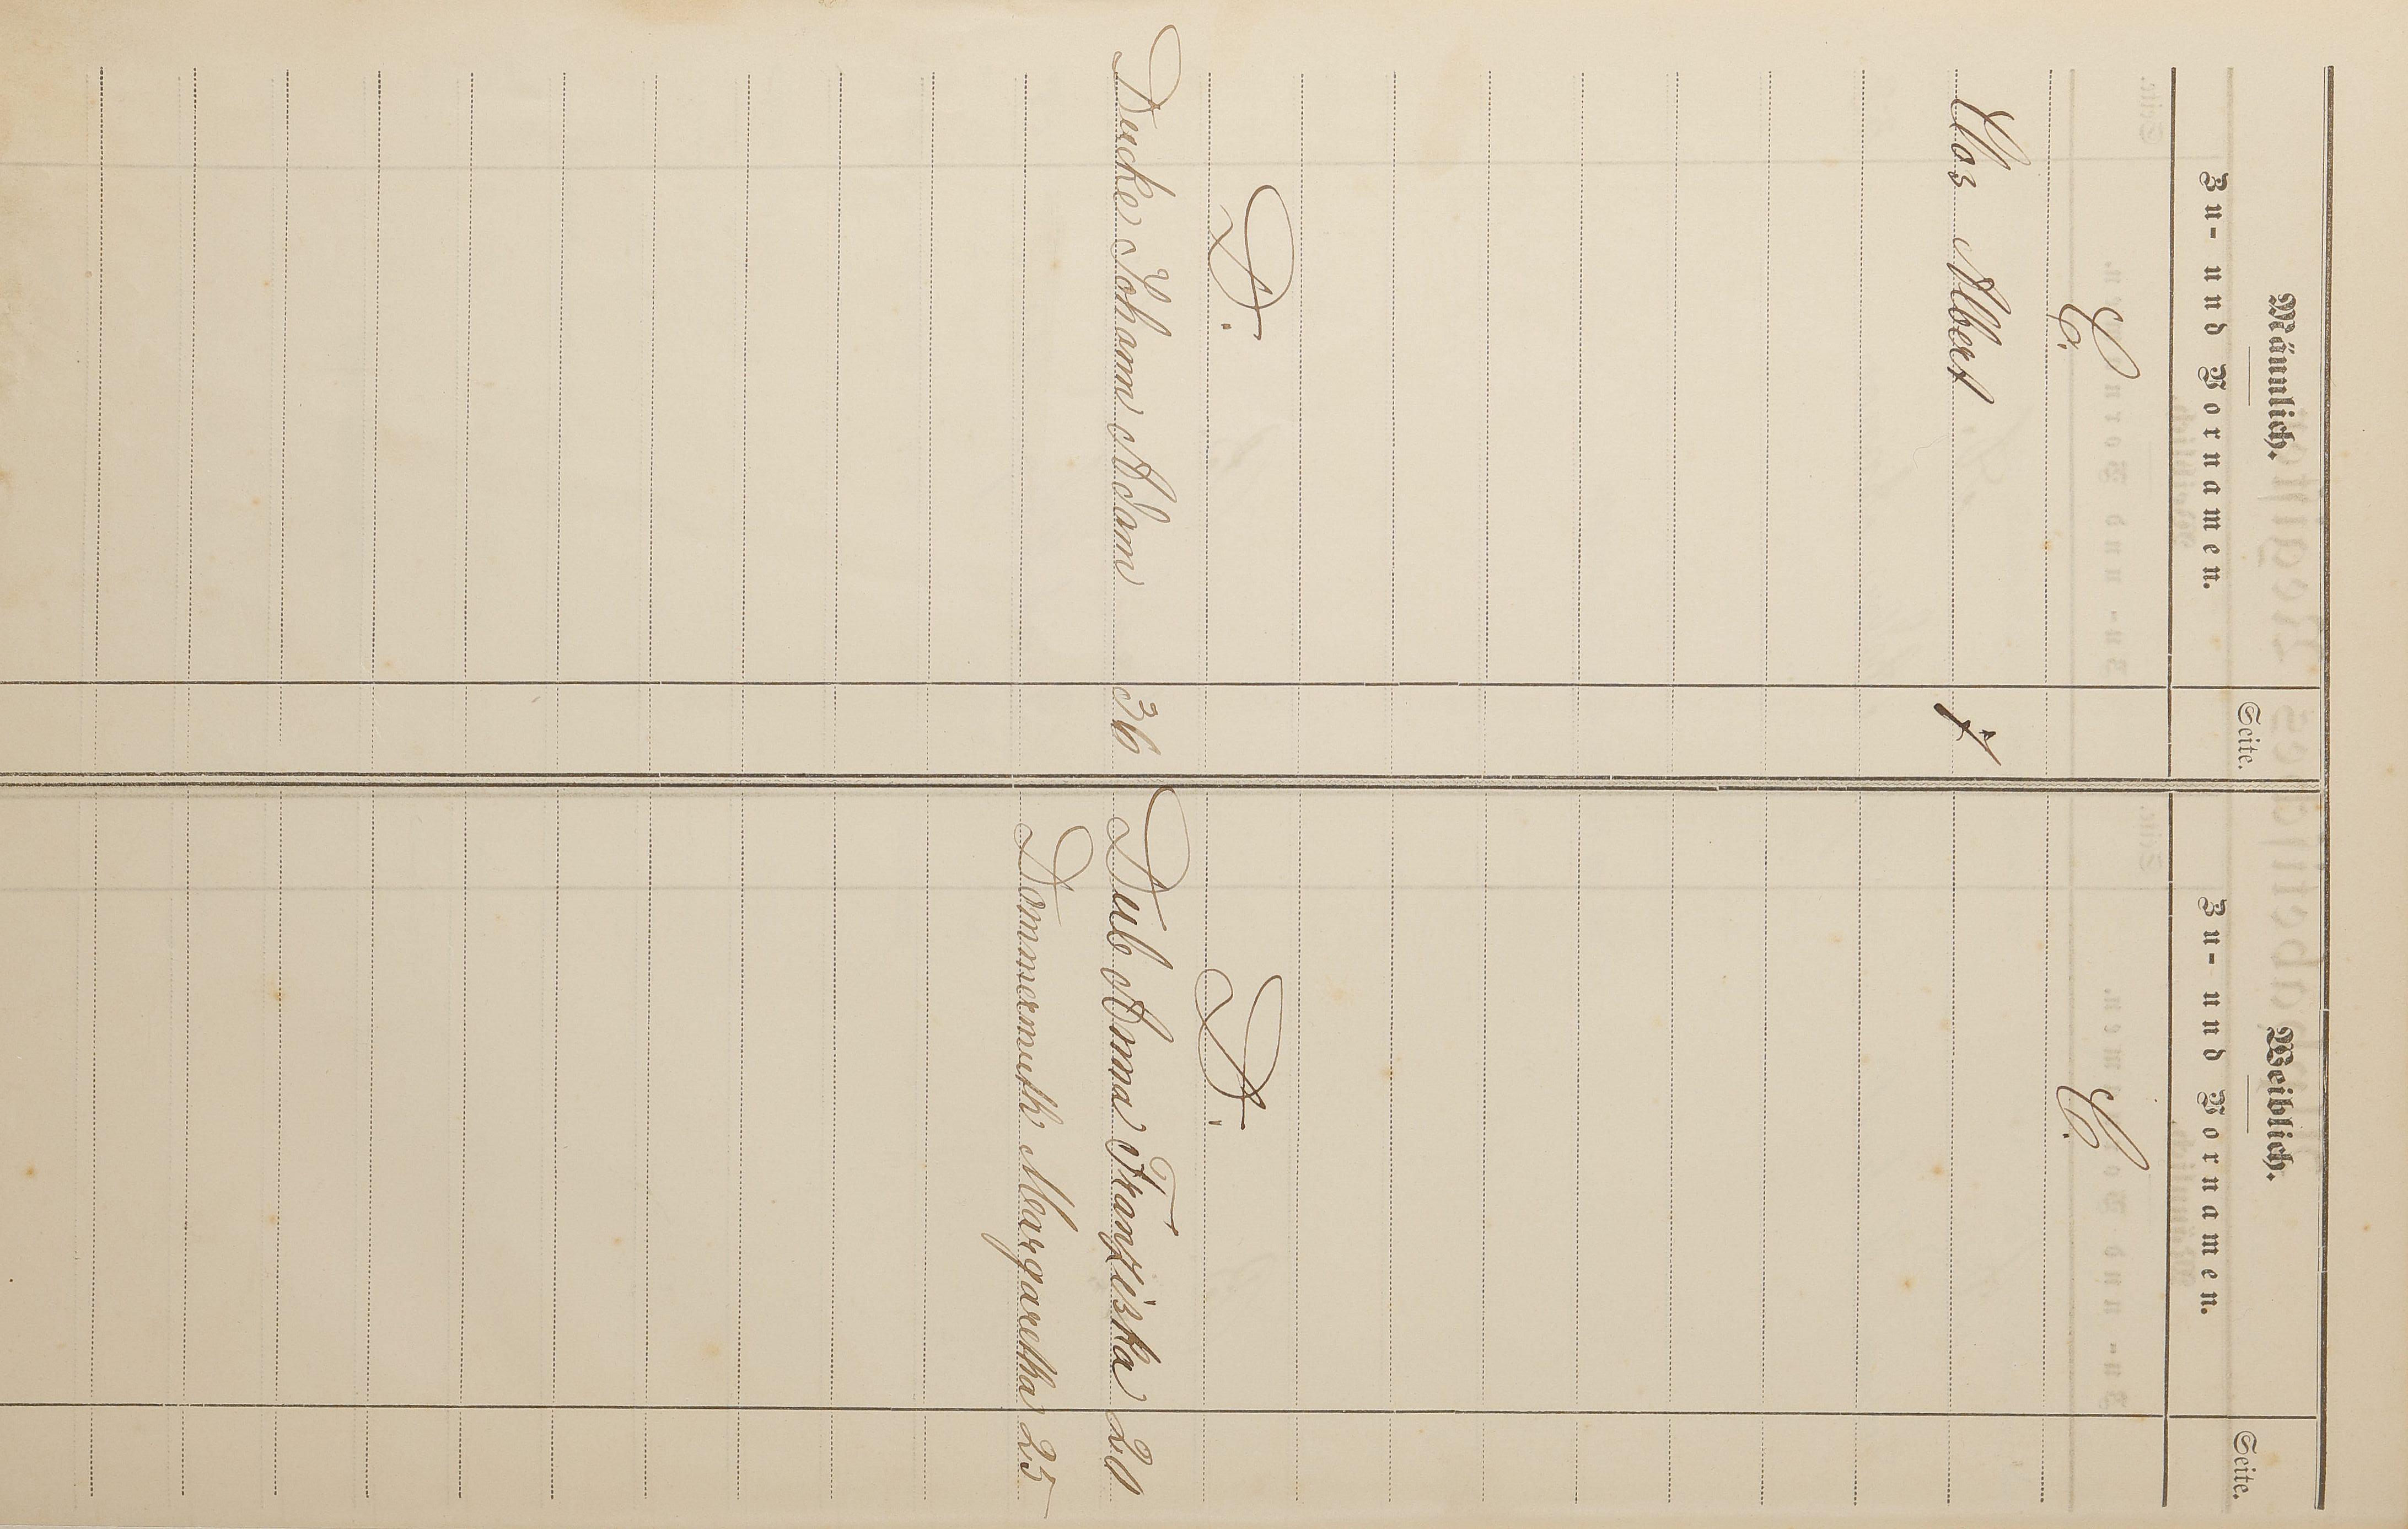 Männlich.
Zu- und Vornamen.
Seite.
C.
Clos Albert 7
D.
Ducke Johann Adam 36
Weiblich.
Zu- und Vornamen.
Seite.
C.
D.
Dub Anna Franziska 20
Dommermuth Margaretha 25